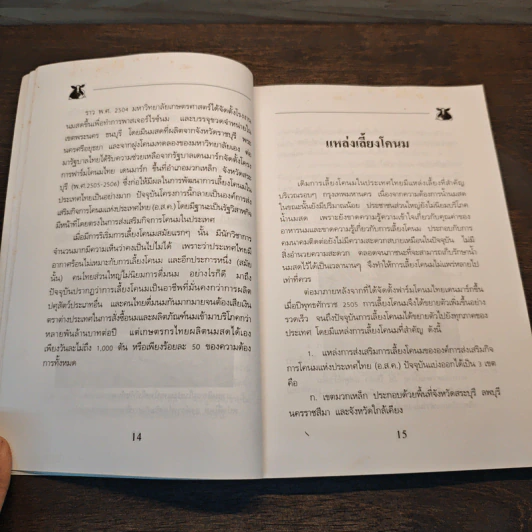 ราว พ.ศ. 2504 มหาวิทยาลัยเกษตรศาสตร์ได้จัดตั้งโรงงาน
นมสดขึ้นเพื่อทำการพาสเจอร์ไรซ์นม และบรรจุขวดจำหน่ายใน
เขตพระนคร ธนบุรี โดยมีนมสดที่ผลิตจากจังหวัดราชบุรี
นครศรีอยุธยา และจากฝูงโคนมทดลองของมหาวิทยาลัยเอง
มารัฐบาลไทยได้รับความช่วยเหลือจากรัฐบาลเดนมาร์กจัดตั้งโครง
การฟาร์มโคนมไทย เดนมาร์ก ขึ้นที่อำเภอมวกเหล็ก จังหวัดสระ
บุรี (พ.ศ.2505-2506) ซึ่งก่อให้มีผลในการพัฒนาการเลี้ยงโคนมใน
ประเทศไทยเป็นอย่างมาก ปัจจุบันโครงการนี้กลายเป็นองค์การส่ง
เสริมกิจการโคนมแห่งประเทศไทย (อ.ส.ค.) โดยมีฐานะเป็นรัฐวิสาหกิจ
มีหน้าที่โดยตรงในการส่งเสริมกิจการโคนมในประเทศ
เมื่อมีการริเริ่มการเลี้ยงโคนมสมัยแรกๆ นั้น มีนักวิชาการ
จำนวนมากมีความเห็นว่าคงเป็นไปไม่ได้ เพราะว่าประเทศไทยมี
อากาศร้อนไม่เหมาะกับโคนม และอีกประการหนึ่ง (สมัย
นั้น) คนไทยส่วนใหญ่ไม่นิยมการดื่มนม อย่างไรก็ดี มาถึง
ปัจจุบันปรากฏว่าการเลี้ยงโคนมเป็นอาชีพที่มั่นคงกว่าการผลิต
ปศุสัตว์ประเภทอื่น และคนไทยดื่มนมกันมากมายจนต้องเสียเงิน
ตราต่างประเทศในการสั่งซื้อนมและผลิตภัณฑ์นมเข้ามาบริโภคกว่า
หลายพันล้านบาทต่อปี แต่เกษตรกรไทยผลิตนมสดได้เอง
เพียงวันละไม่ถึง 1,000 ตัน หรือเพียงร้อยละ 50 ของความต้อง
การทั้งหมด
14
แหล่งเลี้ยงโคนม
เดิมการเลี้ยงโคนมในประเทศไทยมีแหล่งเลี้ยงที่สำคัญ
บริเวณรอบๆ กรุงเทพมหานคร เนื่องจากความต้องการน้ำนมสด
ในขณะนั้นยังมีปริมาณน้อย ประชาชนส่วนใหญ่ยังไม่นิยมบริโภค
น้ำนมสด เพราะยังขาดความรู้ความเข้าใจเกี่ยวกับคุณค่าของ
อาหารนมและขาดความรู้เกี่ยวกับการเลี้ยงโคนม ประกอบกับการ
คมนาคมติดต่อยังไม่มีความสะดวกสบายเหมือนในปัจจุบัน ไม่มี
สิ่งอำนวยความสะดวก ตลอดจนภาชนะที่จะสามารถเก็บรักษาน้ำ
นมสดไว้ได้เป็นเวลานานๆ จึงทำให้การเลี้ยงโคนมไม่แพร่หลายไป
เท่าที่ควร
ต่อมาภายหลังจากที่ได้จัดตั้งฟาร์มโคนมไทยเดนมาร์กขึ้น
เมื่อปีพุทธศักราช 2505 การเลี้ยงโคนมจึงได้ขยายตัวเพิ่มขึ้นอย่าง
รวดเร็ว จนถึงปัจจุบันการเลี้ยงโคนมได้ขยายตัวไปยังทุกภาคของ
ประเทศ โดยมีแหล่งการเลี้ยงโคนมที่สำคัญ ดังนี้
1. แหล่งการส่งเสริมการเลี้ยงโคนมขององค์การส่งเสริมกิจ
การโคนมแห่งประเทศไทย (อ.ส.ค.) ปัจจุบันแบ่งออกได้เป็น 3 เขต
คือ
ก. เขตมวกเหล็ก ประกอบด้วยพื้นที่จังหวัดสระบุรี ลพบุรี
นครราชสีมา และจังหวัดใกล้เคียง
15